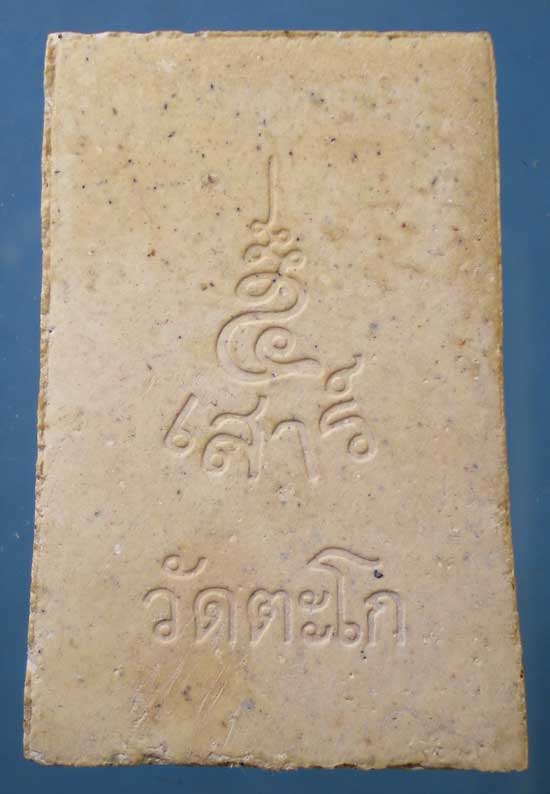 ๕
เสาร์
วัดตะโก